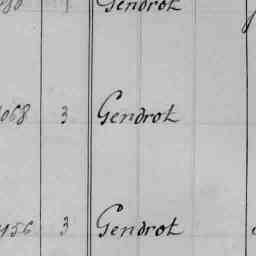 Gendrot
068 3 Gendrot
956 3 Gendrot